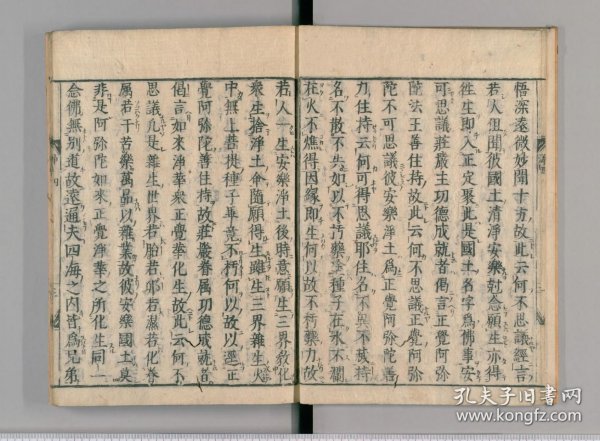 悟深遠微妙聞十方故此云何不思議經言
若人但聞彼國土清淨安樂尅念願生亦得
往生即入正定聚此是國土名字爲佛事安
可思議莊嚴主功德成就者偈言正覺阿弥
陀法王善住持故此云何不思議正覺阿弥
陀不可思議彼安樂淨土爲正覺阿弥陀善
力住持云何可得思議耶住名不異不滅持
名不散不失如以不朽藥塗種子在水不瀾
在火不燋得因縁即生何以故不朽藥力故
若人一生安樂淨土後時意願生三界教化
衆生捨淨土命隨願得生雖生三界雜生火
中無上菩提種子畢竟不朽何以故以逕正
覺阿弥陀善住持故莊嚴眷属功德成就者
偈言如來淨華衆正覺華化生故此云何不
思議凡是雜生世界若胎若卵若濕若化眷
属若干苦樂萬品以雜業故彼安樂國土莫
非是阿弥陀如來正覺淨華之所化生同一
念佛無別道故遠通夫四海之內皆爲兄弟
孔夫子旧书网
www.kongfz.com